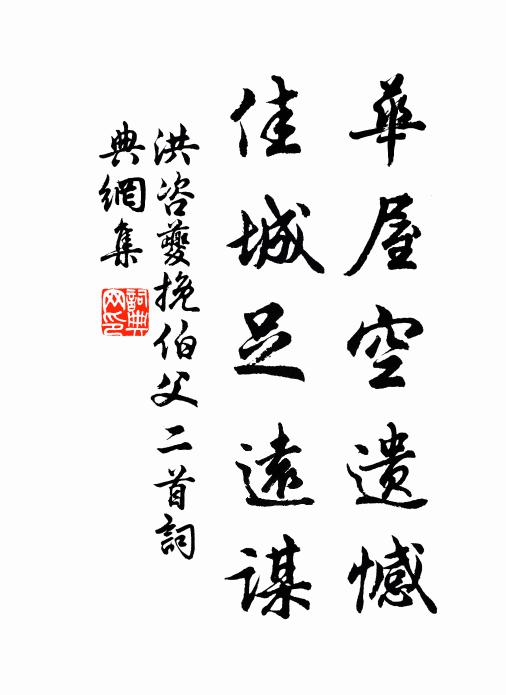 華屋空遺憾
佳城足遠謀
洪咨夔挽伯父二首詞
典網集
詞典
网印